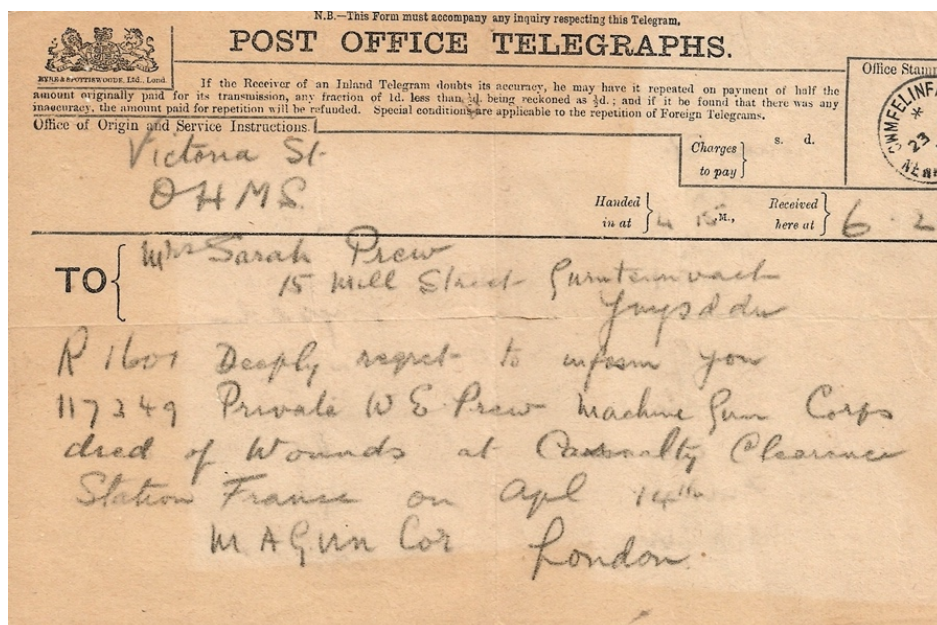 N.B.—This Form must accompany any inquiry respecting this Telegram.
POST OFFICE TELEGRAPHS.
EYRE & SPOTTISWOODE, Ltd., Lond.
If the Receiver of an Inland Telegram doubts its accuracy, he may have it repeated on payment of half the
amount originally paid for its transmission, any fraction of 1d. less than ½d. being reckoned as ½d.; and if it be found that there was any
inaccuracy, the amount paid for repetition will be refunded. Special conditions are applicable to the repetition of Foreign Telegrams.
Office Stamp
CWMFELINFA
23
NEW
Office of Origin and Service Instructions.
Victoria St
OHMS
Charges to pay
s. d.
Handed in at 4 15 M.,
Received here at 6. 2
TO
Mrs Sarah Prew
15 Mill Street
Ynysddu
R 1601 Deeply regret to inform you
117349 Private W E Prew Machine Gun Corps
died of Wounds at Casualty Clearence
Station France on Apl 14th
M A Gun Cor London